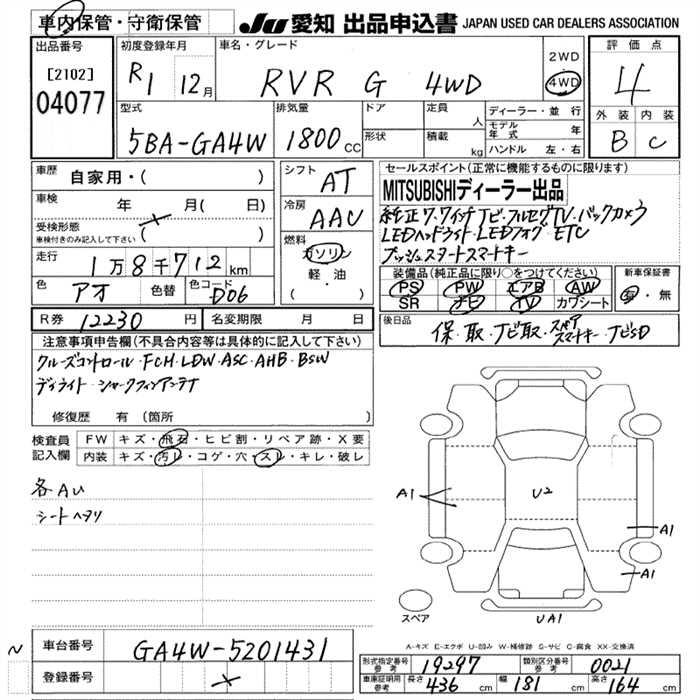 車内保管・守衛保管 JU 愛知 出品申込書 JAPAN USED CAR DEALERS ASSOCIATION
出品番号 [2102] 04077
初度登録年月 R1 12月
車名・グレード RVR G 4WD
2WD 4WD
評価点 4
外装 内装
B C
型式 5BA-GA4W
排気量 1800CC
ドア 形状
定員 人
積載 kg
ディーラー・並行
モデル年式 年
ハンドル 左・右
車歴 自家用・( )
車検 年 月( 日)
受検形態 車検付きのみ記入して下さい ( )
走行 1万8千712km
色 アオ 色替 色コード D06
シフト AT
冷房 AAC
燃料 ガソリン 軽・油 ( )
セールスポイント(正常に機能するものに限ります)
MITSUBISHIディーラー出品
純正7.7インチナビ・フルセグTV・バックカメラ
LEDヘッドライト・LEDフォグ・ETC
プッシュスタートスマートキー
装備品(純正品に限り○をつけてください)
PS PW エアB AW
SR ナビ TV カワシート
新車保証書 有・無
R券 12230円 名変期限 月 日
後日品 保・取・ナビ取・スペアスマートキー・ナビSD
注意事項申告欄(不具合内容等は具体的に記入して下さい)
クルーズコントロール・FCM・LDW・ASC・AHB・BSW
デイライト・シャークフィンアンテナ
修復歴 有(箇所 )
検査員記入欄
FW キズ・飛石・ヒビ割・リペア跡・X要
内装 キズ・汚レ・コゲ・穴・スレ・キレ・破レ
各AU
シートヘタリ
A1 U2 A1
A1
スペア UA1
A-キズ E-エクボ U-凹み W-補修跡 S-サビ C-腐食 XX-交換済
車台番号 GA4W-5201431
登録番号
形式指定番号 参考 19297 類別区分番号 参考 0021
車庫証明用 参考 長さ 436cm 幅 181cm 高さ 164cm